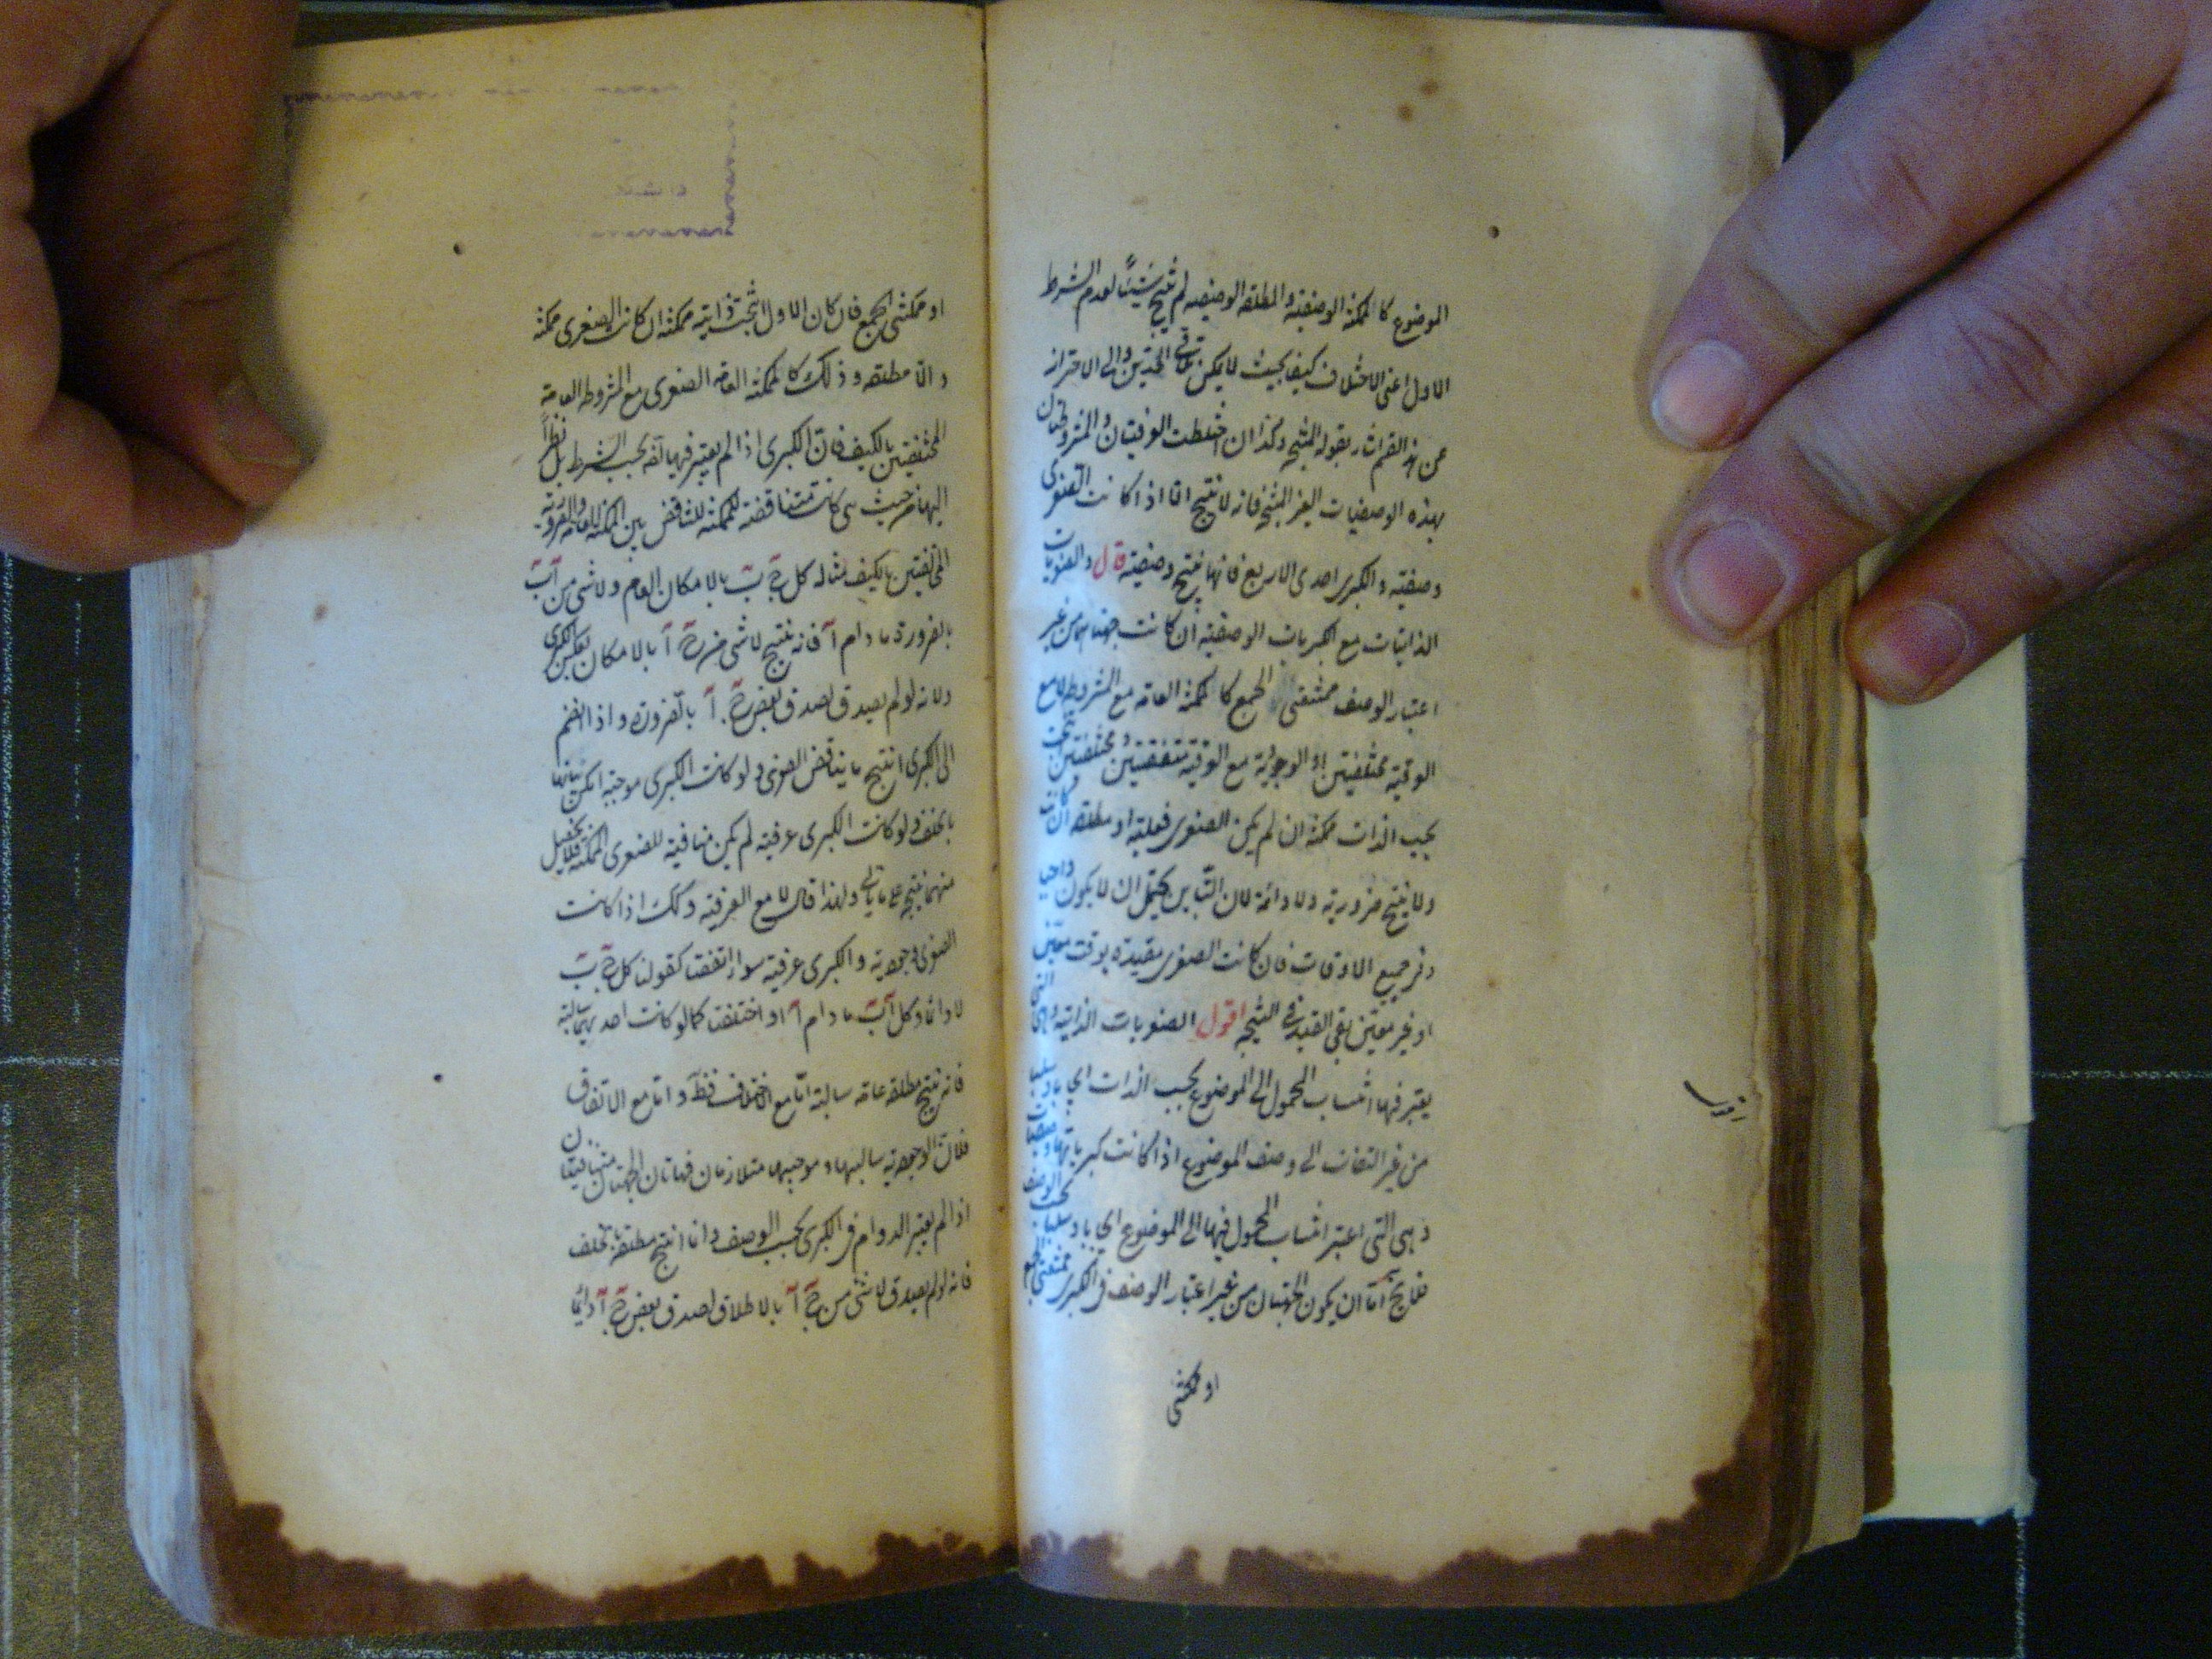 الموضوع كالممكنة الوصفية والمطلقة الوصفية لم ينتج شيئًا لعدم الشرط
الاول اعنى الاختلاف كيفا بحيث لا يمكن الحدين والى الاحتراز
عن هذا القسم اشار بقوله المنتجه وكذا ان اختلطت الوقتيان والمشروطتان
بهذه الوصفيات الغير المنتجة فانه لا ينتج اما اذا كانت الصغرى
وصفية والكبرى احدى الاربع فانها ينتج وصفية قال والصغريات
الذاتيات مع الكبريات الوصفية ان كانت جهتاهما من غير
اعتبار الوصف ممتنعتى الجمع كالممكنة العامه مع المشروطة لا مع
الوقتية مختلفتين او الوجودية مع الوقتية متفقتين ومختلفتين
بحسب الذات ممكنة ان لم يكن الصغرى فعلية او مطلقة ان كانت
ولا ينتج ضرورية ولا دائمة لان التباين يحتمل ان لا يكون واجبا
وفى جميع الاوقات فان كانت الصغرى مقيدة بوقت معين
او غير معين بقى القيد فى النتيجه اقول الصغريات الذاتية وهى التى
يعتبر فيها انتساب المحمول الى الموضوع بحسب الذات ايجابا وسلبا
من غير التفات الى وصف الموضوع اذا كانت كبرياتها وصفيات
وهى التى اعتبر انتساب المحمول فيها الى الموضوع ايجابا وسلبا بحسب الوصف
فلا يخ اما ان يكون الجهتان من غير اعتبار الوصف فى الكبرى ممتنعتى الجمع
او ممكنتى
او ممكنتى الجمع فان كان الاول انتجت ذاتية ممكنة ان كانت الصغرى ممكنة
والا مطلقه وذلك كالممكنة العامه الصغرى مع المشروطة العامة
المختلفتين بالكيف فان الكبرى اذا لم يعتبر فيها انه بحسب الشرط بل نظرا
اليها من حيث هى كانت مناقضة للممكنة للتناقض بين الممكنة العامة والضرورية
المختلفتين بالكيف مثاله كل ج ب بالامكان العام ولا شى من ا ب
بالضرورة ما دام ا فانه ينتج لا شى من ج ا بالامكان بعكس الكبرى
ولانه لو لم يصدق لصدق بعض ج ا بالضرورة واذا انضم
الى الكبرى انتج ما يناقض الصغرى ولو كانت الكبرى موجبة امكن بيانها
بالخلف ولو كانت الكبرى عرفية لم يكن منافية للصغرى الممكنة فلا يحصل
منهما نتيجة على ما ياتى ولهذا قال لا مع العرفية وكذلك اذا كانت
الصغرى وجودية والكبرى عرفية سواء اتفقتا كقولنا كل ج ب
لا دائما وكل ا ب ما دام ا او اختلفت كما لو كانت احديهما سالبة
فانه ينتج مطلقه عامه سالبة اما مع الاختلاف فظ واما مع الاتفاق
فلان الوجودية سالبها وموجبها متلازمان فهاتان الجهتان متنافيتان
اذا لم يعتبر الدوام فى الكبرى بحسب الوصف وانما انتج مطلقة بالخلف
فانه لو لم يصدق لا شى من ج ا بالاطلاق لصدق بعض ج ا دائما